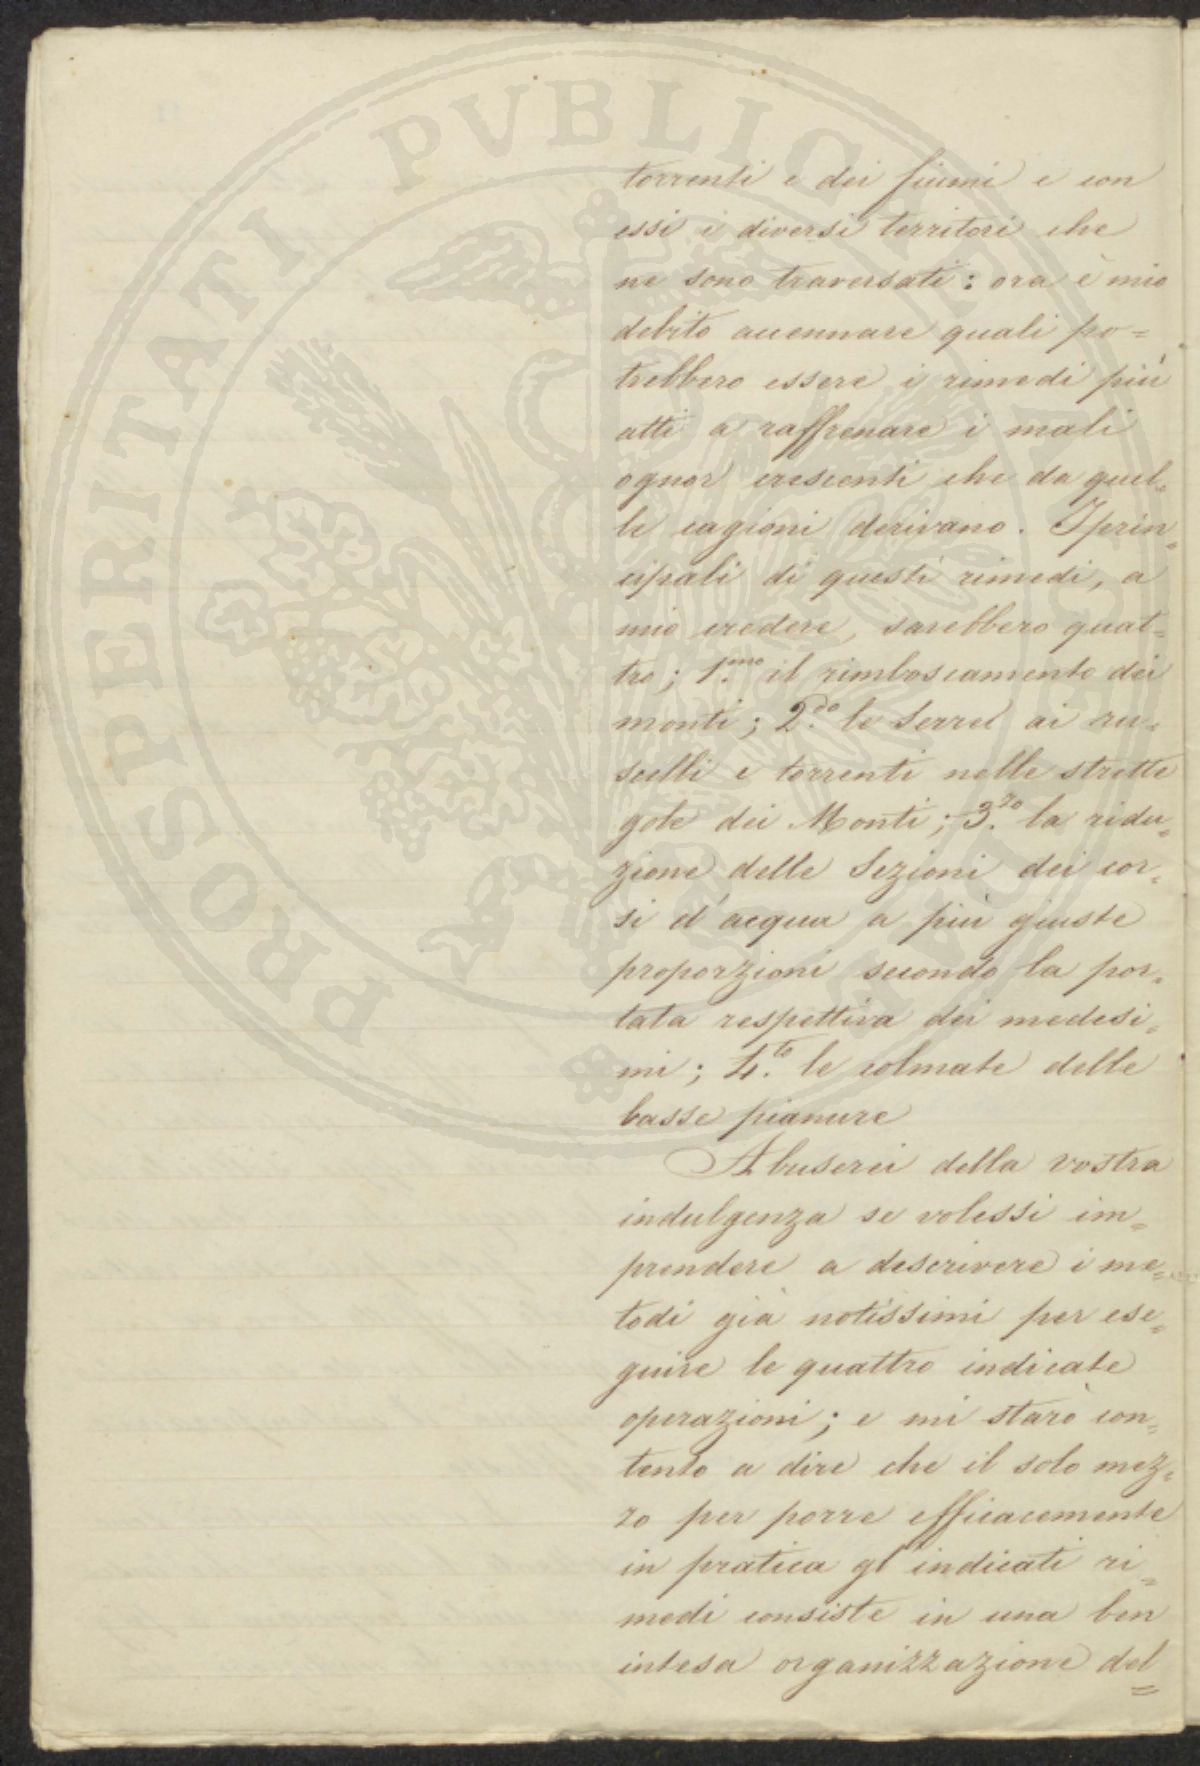 torrenti e dei fiumi e con
essi i diversi territori che
ne sono traversati: ora è mio
debito accennare quali po=
trebbero essere i rimedi più
atti a raffrenare i mali
ognor crescenti che da quel=
le cagioni derivano. I prin=
cipali di questi rimedi, a
mio credere, sarebbero quat=
tro; 1.mo il rimboscamento dei
monti; 2.do le Serre ai ru=
scelli e torrenti nelle strette
gole dei Monti; 3.zo la ridu=
zione delle Sezioni dei cor=
si d'acqua a più giuste
proporzioni secondo la por=
tata respettiva dei medesi=
mi; 4.to le colmate delle
basse pianure
Abuserei della vostra
indulgenza se volessi im=
prendere a descrivere i me=
todi già notissimi per ese=
guire le quattro indicate
operazioni; e mi starò con=
tento a dire che il solo mez=
zo per porre efficacemente
in pratica gl'indicati ri=
medi consiste in una ben
intesa organizzazione del=
PROSPERITATI PVBLICAE AVGENDAE